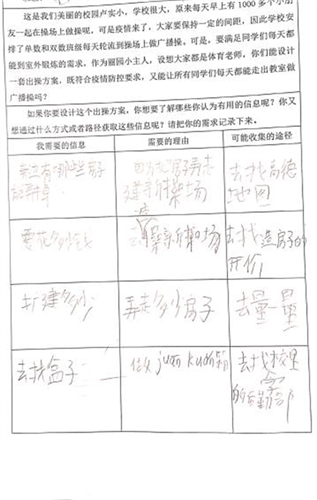 这是我们美丽的校园卢实小，学校很大，原来每天早上有 1000 多个小朋
友一起在操场上做操呢，可是疫情来了，大家要保持一定的间距，因此学校安
排了单数和双数班级每天轮流到操场上做广播操，可是，要满足同学们每天都
能到室外锻炼的需求，作为丽园小主人，设想大家都是体育老师，你们能设计
一套出操方案，既符合疫情防控要求，又能让所有同学们每天都能走出教室做
广播操吗？
如果你要设计这个出操方案，你想要了解哪些你认为有用的信息呢？你又
想通过什么方式或者路径获取这些信息？请把你的需求记录下来。
我需要的信息 需要的理由 可能收集的途径
房子
建新操场
去找高德
地图
要花多少钱
新操场
去找造房子的
开价
扩建多少
弄走多少房子
去量一量
去找盒子
juan kuan
去找校里
的
部